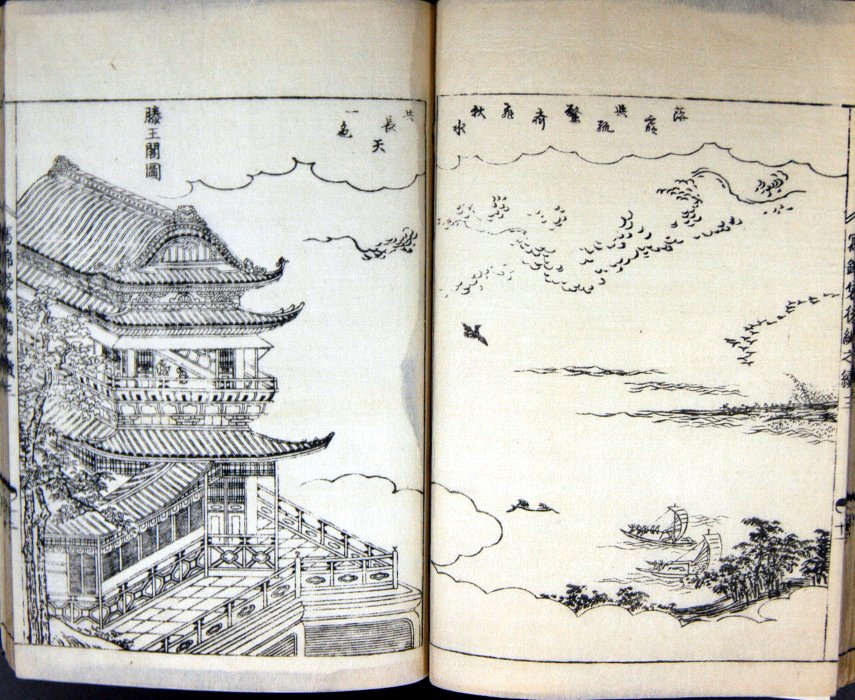 落霞與孤鶩齊飛秋水
共長天一色
滕王閣圖